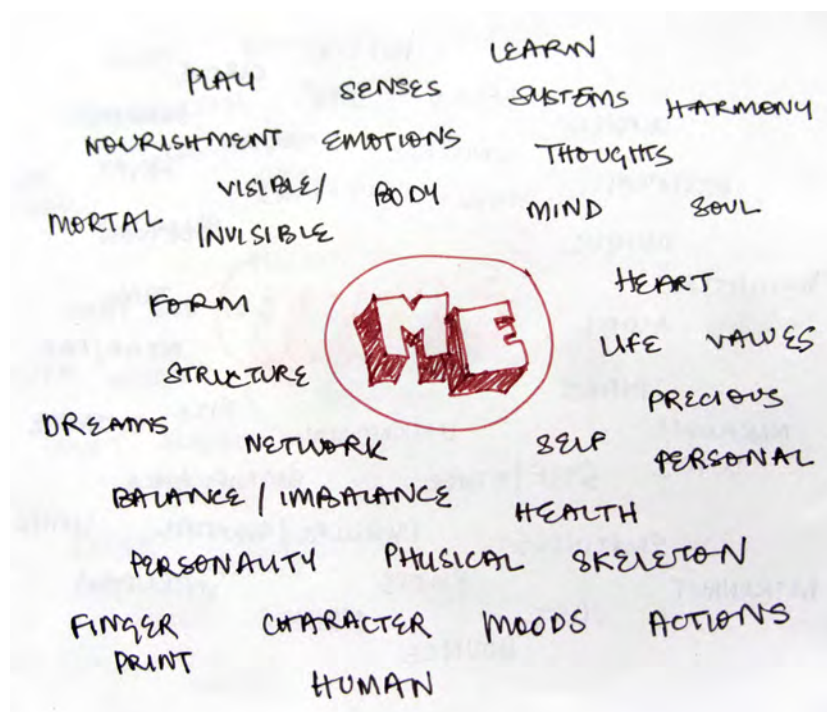 LEARN
PLAY SENSES SYSTEMS HARMONY
NOURISHMENT EMOTIONS THOUGHTS
VISIBLE/ BODY MIND SOUL
MORTAL INVISIBLE
HEART
FORM ME
LIFE VALUES
STRUCTURE
PRECIOUS
DREAMS
NETWORK SELF PERSONAL
BALANCE / IMBALANCE HEALTH
PERSONALITY PHYSICAL SKELETON
FINGER CHARACTER MOODS ACTIONS
PRINT
HUMAN